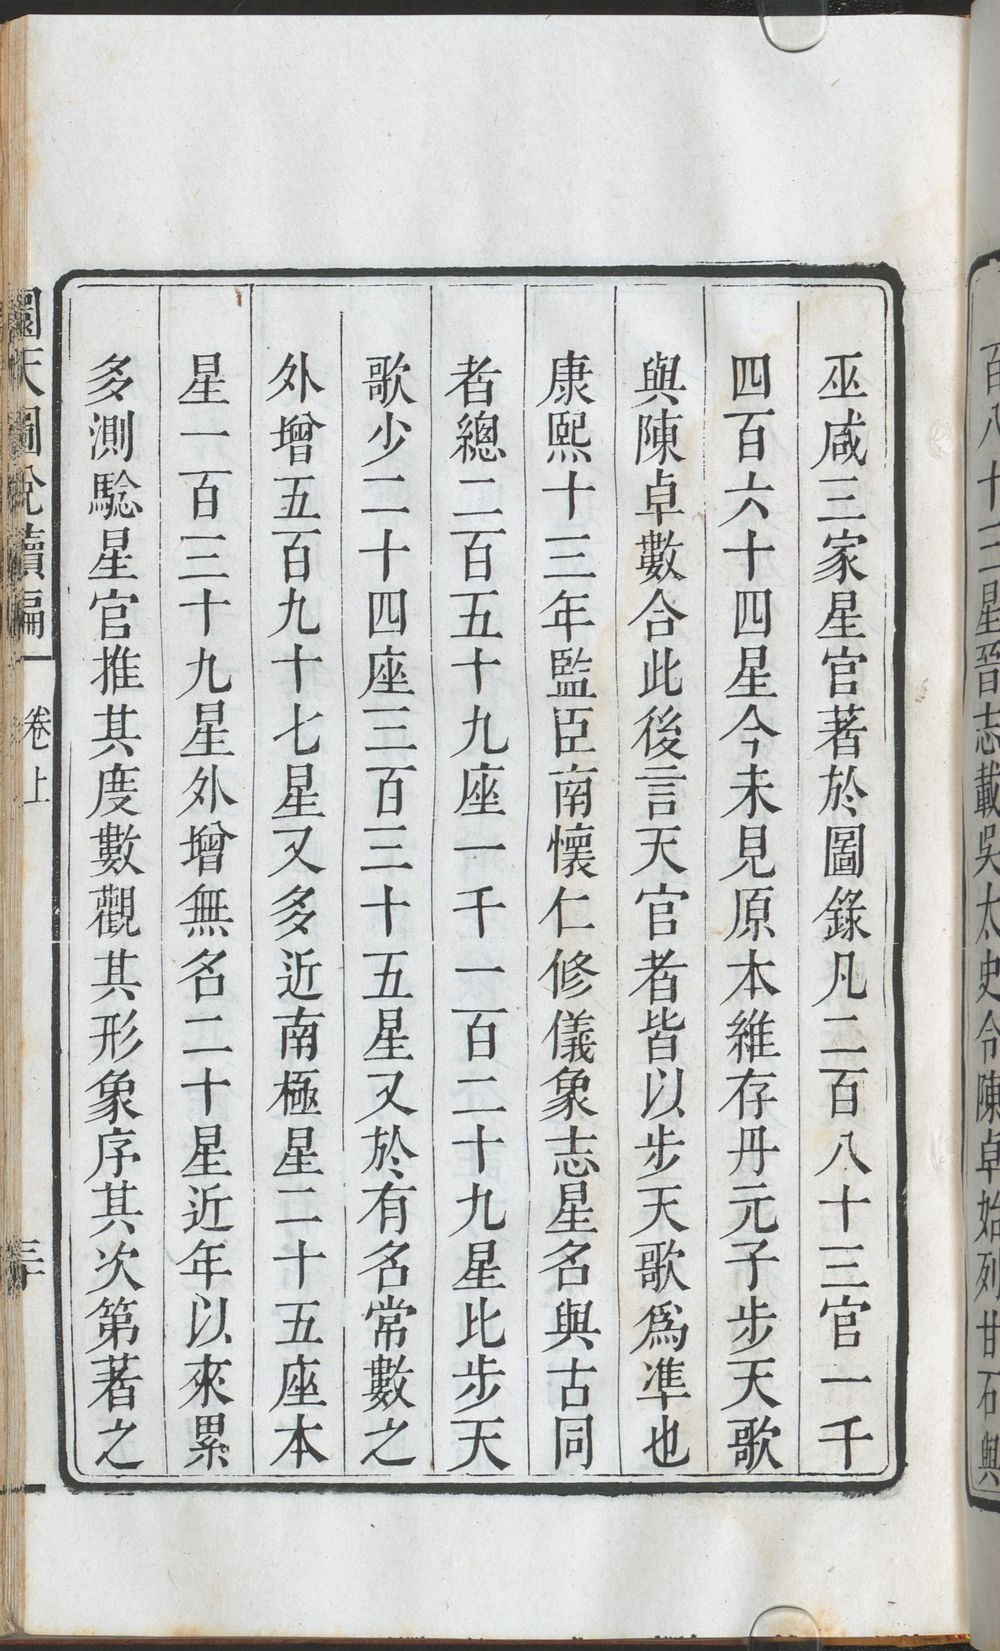 百八十三星晉志載吳太史令陳卓始列甘石與
巫咸三家星官著於圖錄凡二百八十三官一千
四百六十四星今未見原本維存丹元子步天歌
與陳卓數合此後言天官者皆以步天歌爲準也
康熙十三年監臣南懷仁修儀象志星名與古同
者總二百五十九座一千一百二十九星比步天
歌少二十四座三百三十五星又於有名常數之
外增五百九十七星又多近南極星二十五座本
星一百三十九星外增無名二十星近年以來累
多測驗星官推其度數觀其形象序其次第著之
圜天圖說續編
卷上